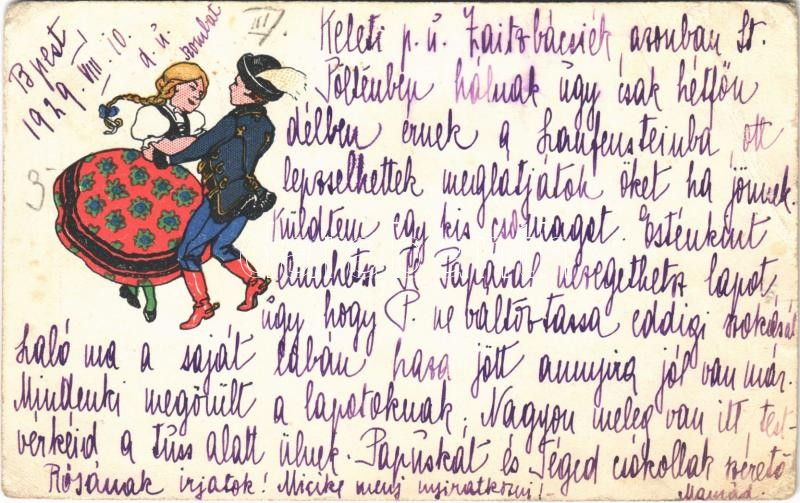 Bpest
1929. VIII. 10.
d. u. szombat
III.
Keleti p. ú. Zaitzbácsiék azonban St.
Pöltenben hálnak úgy csak hétfőn
délben érnek a ott
meglátjátok őket ha jönnek.
Küldtem egy kis csomagot. Esténként
elmehetsz Papával nézegethetsz lapot,
úgy hogy P. ne változtassa eddigi szokását
Laló ma a saját lábán haza jött annyira jól van már.
Mindenki megörült a lapotoknak. Nagyon meleg van itt, test-
vérkéid a tuss alatt ülnek. Papuskát és Téged csókollak szerető
Rózának írjatok! Micike menj nyiratkozni! Mamád